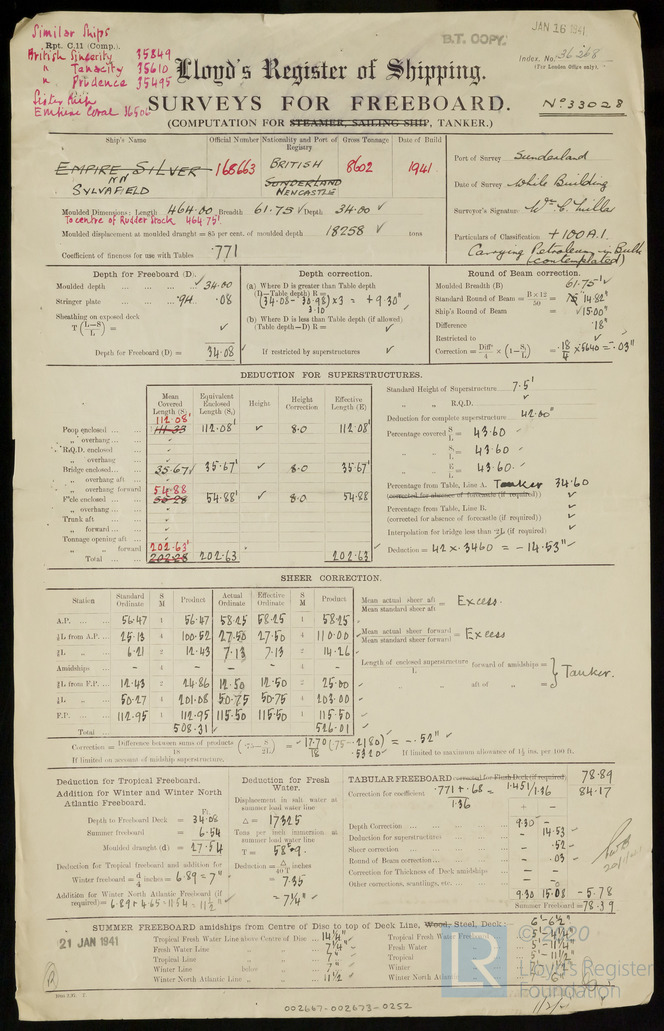 Similar Ships
JAN 16 1941
B.T. COPY.
Rpt. C.11 (Comp.).
British Sincerity 35849
" Tenacity 35610
" Prudence 35495
Sister Ship
Empire Coral 36500
Index. No. 36268
(For London Office only).
Lloyd's Register of Shipping.
SURVEYS FOR FREEBOARD.
No 33028
(COMPUTATION FOR STEAMER, SAILING SHIP, TANKER.)
Ship's Name
Official Number
Nationality and Port of Registry
Gross Tonnage
Date of Build
EMPIRE SILVER
SYLVAFIELD
168663
BRITISH
SUNDERLAND
NEWCASTLE
8602
1941
Port of Survey Sunderland
Date of Survey While Building
Surveyor's Signature
Particulars of Classification +100A.1.
Carrying Petroleum in Bulk
(contemplated)
Moulded Dimensions: Length 464.00 Breadth 61.75 Depth 34.00
To centre of Rudder Stock 464.75'
Moulded displacement at moulded draught = 85 per cent. of moulded depth 18258 tons
Coefficient of fineness for use with Tables .771
Depth for Freeboard (D).
Moulded depth 34.00
Stringer plate .94 .08
Sheathing on exposed deck
T (L-S/L) =
Depth for Freeboard (D) = 34.08
Depth correction.
(a) Where D is greater than Table depth
(D-Table depth) R =
(34.08 - 30.98) x 3 = + 9.30"
3.10
(b) Where D is less than Table depth (if allowed)
(Table depth-D) R =
If restricted by superstructures
Round of Beam correction.
Moulded Breadth (B) 61.75
Standard Round of Beam = B x 12/50 = 14.82"
Ship's Round of Beam = 15.00"
Difference .18"
Restricted to
Correction = Diff/4 x (1 - S₁/L) = .18/4 x .5640 = -.03"
DEDUCTION FOR SUPERSTRUCTURES.
Mean Covered Length (S)
Equivalent Enclosed Length (S₁)
Height
Height Correction
Effective Length (E)
Poop enclosed 112.08' 112.08' 8.0 112.08'
" overhang
R.Q.D. enclosed
" overhang
Bridge enclosed 35.67 35.67' 8.0 35.67'
" overhang aft
" overhang forward
F'cle enclosed 54.88 54.88' 8.0 54.88
" overhang
Trunk aft
" forward
Tonnage opening aft
" " forward
Total 202.63' 202.28 202.63 202.63
Standard Height of Superstructure 7.5'
" " R.Q.D.
Deduction for complete superstructure 42.00"
Percentage covered S/L = 43.60
S₁/L = 43.60
E/L = 43.60
Percentage from Table, Line A. Tanker 34.60
(corrected for absence of forecastle (if required))
Percentage from Table, Line B.
(corrected for absence of forecastle (if required))
Interpolation for bridge less than .2L (if required)
Deduction = 42 x .3460 = -14.53"
SHEER CORRECTION.
Station
Standard Ordinate
S M
Product
Actual Ordinate
Effective Ordinate
S M
Product
A.P. 56.47 1 56.47 58.25 58.25 1 58.25
⅙L from A.P. 25.13 4 100.52 27.50 27.50 4 110.00
⅓L " 6.21 2 12.43 7.13 7.13 2 14.26
Amidships - 4 - - - 4 -
⅓L from F.P. 12.43 2 24.86 12.50 12.50 2 25.00
⅙L " 50.27 4 201.08 50.75 50.75 4 203.00
F.P. 112.95 1 112.95 115.50 115.50 1 115.50
Total 508.31 526.01
Mean actual sheer aft / Mean standard sheer aft = Excess.
Mean actual sheer forward / Mean standard sheer forward = Excess
Length of enclosed superstructure forward of amidships =
L
" aft of " =
Tanker.
Correction = Difference between sums of products/18 (.75 - S/2L) = -17.70/18 (.75 - .2180) = -.52"
.5320
If limited on account of midship superstructure.
If limited to maximum allowance of 1½ ins. per 100 ft.
Deduction for Tropical Freeboard.
Addition for Winter and Winter North Atlantic Freeboard.
Ft.
Depth to Freeboard Deck = 34.08
Summer freeboard = 6.54
Moulded draught (d) = 27.54
Deduction for Tropical freeboard and addition for
Winter freeboard = d/4 inches = 6.89 = 7"
Addition for Winter North Atlantic Freeboard (if
required) = 6.89 + 4.65 = 11.54 = 11½"
Deduction for Fresh Water.
Displacement in salt water at summer load water line
Δ = 17325
Tons per inch immersion at summer load water line
T = 58.9
Deduction = Δ/40T inches
= 7.35
= 7¼"
TABULAR FREEBOARD corrected for Flush Deck (if required) 78.89
Correction for coefficient .771 + .68 / 1.36 = 1.451/1.36 84.17
+ -
Depth Correction 9.30 -
Deduction for superstructures - 14.53
Sheer correction - .52
Round of Beam correction - .03
Correction for Thickness of Deck amidships - -
Other corrections, scantlings, etc. - -
9.30 15.08 -5.78
Summer Freeboard = 78.39
SUMMER FREEBOARD amidships from Centre of Disc to top of Deck Line, Wood, Steel, Deck: 6'-6½"
21 JAN 1941
Tropical Fresh Water Line above Centre of Disc 14¼"
Fresh Water Line " " 7¼"
Tropical Line " " 7"
Winter Line below " 7"
Winter North Atlantic Line " " 11½"
Tropical Fresh Water Freeboard 5'-4¼"
Fresh Water " 5'-11¼"
Tropical " 5'-11½"
Winter "
Winter North Atlantic "
© 2020
LR
Lloyd's Register
Foundation
002667-002673-0252